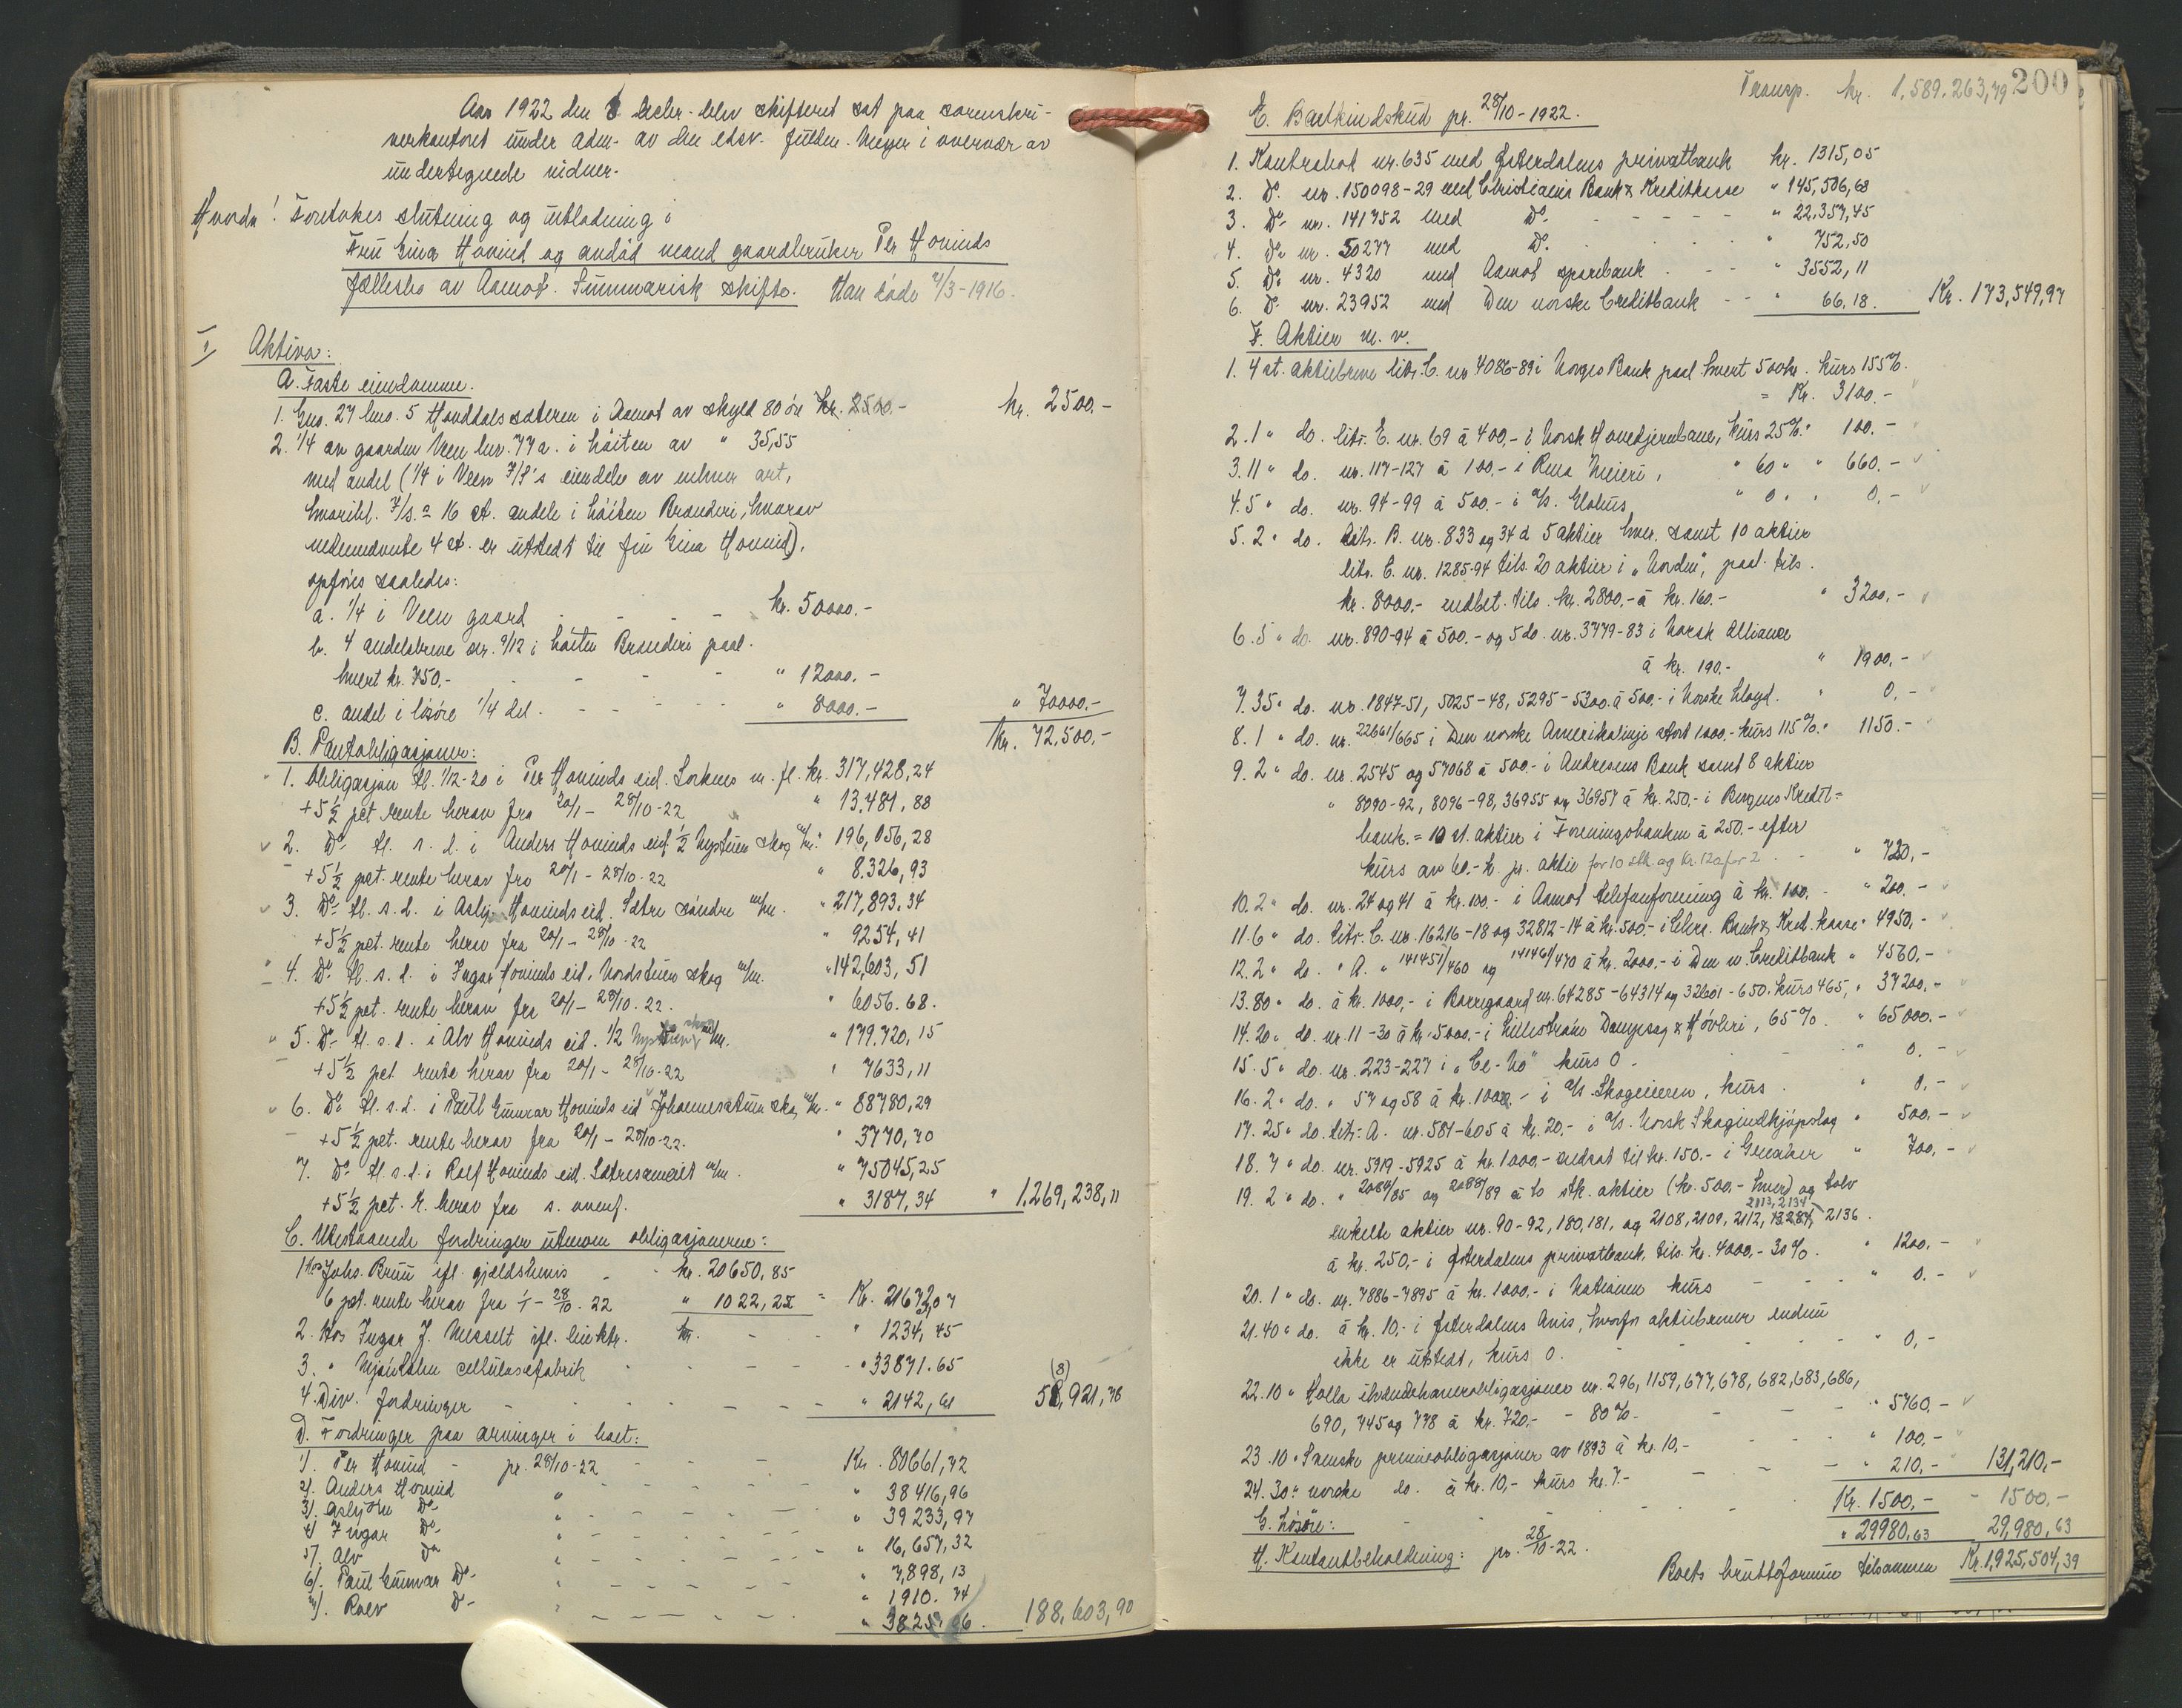 Aar 1922 den 6 decbr. blev skifteret sat paa sorenskri-
verkontoret under adm. av den edsv. fuldm. Meyer i overvær av
undertegnede vidner.
Hvorda! Foretokes slutning og utlodning i
Fru Gina Hovind og avdød mand gaardbruker Per Hovinds
fællesbo av Aamot. Summarisk skifte. Han døde 7/3-1916.
I, Aktiva:
A. Faste eiendomme.
1. Gno. 27 bno. 5 Hovddalssæteren i Aamot av skyld 80 øre kr. 2500.- kr. 2500.-
2. 1/4 av gaarden Veen bnr. 77a. i Løiten av " 35,55
med andel (1/4 i Veen I/S's eiendele av enhver art,
hvoribl. I/S. = 16 st. andele i Løiten Brænderi, hvorav
vedkommende 4 st. er utstedt til fru Gina Hovind),
opføres saaledes:
a. 1/4 i Veen gaard - - - kr. 50000.-
b. 4 andelsbreve nr. 9/12 i Løiten Brænderi paal.
hvert kr. 750.- - - - " 12000.-
c. andel i løsøre 1/4 del. - - - " 8000.- " 70000.-
kr. 72,500.-
B. Pantobligasjoner:
1. Obligasjon tl. 1/12-20 i Per Hovinds eid. Lorkens m. fl. kr. 317,428,24
+ 5 1/2 pct rente herav fra 20/1 - 28/10-22 " 13.481,88
2. Do. tl. s. d. i Anders Hovinds eid. 1/2 Nystuen skog m/m. " 196,056,28
+ 5 1/2 pct. rente herav fra 20/1 - 28/10-22 " 8.326,93
3. Do. tl. s. d. i Asbj. Hovinds eid. Sætre søndre m/m. " 217,893.34
+ 5 1/2 pct. rente herav fra 20/1 - 28/10-22 " 9254,41
4. Do. tl. s. d. i Ingar Hovinds eid. Nordstuen skog m/m. " 142,603,51
+ 5 1/2 pct. rente herav fra 20/1 - 28/10-22. " 6056.68.
5. Do. tl. s. d. i Alv Hovinds eid. 1/2 Nystuen skog m/m. " 179.720,15
+ 5 1/2 pct. rente herav fra 20/1 - 28/10-22 " 7633,11
6. Do. tl. s. d. i Paul Gunnar Hovinds eid Johannesstuen skog m/m. " 88780,29
+ 5 1/2 pct. rente herav fra 20/1 - 28/10-22. " 3770,70
7. Do. tl. s. d. i Rolf Hovinds eid. Sætresameiet m/m. " 75045,25
+ 5 1/2 pct. r. herav fra s. ovenf. " 3187,34 " 1,269,238,11
C. Utestaaende fordringer utenom obligasjonerne:
1. Hos Johs. Bruu ifl. gjældsbevis - kr. 20650.85
6 pct. rente herav fra 1/1 - 28/10-22 " 1022,22 = Kr. 21673,07
2. Hos Ingar J. Nesset ifl. bevktr. kr. - - " 1234,45
3. " Mjøndalen cellulosefabrik - - - " 33871.65
4. Div. fordringer - - - " 2142,61 58,921,78
(8)
D. Fordringer paa arvinger i boet:
1). Per Hovind - pr. 28/10-22 - - - Kr. 80661,72
2). Anders Hovind " - - - " 38416,96
3). Asbjørn Do. " - - - " 39233,97
4) Ingar Do. " - - - " 16,657,32
5). Alv Do " - - - " 7,898,13
6). Paul Gunnar Do. " - - - " 1910.74
7). Rolv Do - " - - - " 3825,06. 188,603,90
Transp. kr. 1,589.263,79 200
E. Bankindskud pr. 28/10-1922.
1. Kontrabok nr. 635 med Østerdalens privatbank kr. 1315,05
2. Do. nr. 150098-29 med Christiania Bank & Kreditkasse " 145,506,68
3. Do. nr. 141752 med Do. - - - " 22,357,45
4. Do. nr. 50277 med Do. - - - " 752,50
5. Do. nr. 4320 med Aamot sparebank - - " 3552,11
6. Do. nr. 23952 med Den norske Creditbank - - " 66.18. Kr. 173,549,97
F. Aktier m. v.
1. 4 st. aktiebreve litr. C. nr 4086-89 i Norges Bank paal. hvert 500 kr. kurs 155%.
= Kr. 3100.-
2. 1 " do. litr. E. nr. 69 à 400,- i Norsk Hovedjernbane, kurs 25%. " 100.-
3. 11 " do. nr. 117-127 à 100,- i Rena Meieri, " 60 " " 660.-
4. 5 " do. nr. 94-99 à 500.- i A/S. Globus, " 0 " " 0.-
5. 2 " do. litr. B. nr. 833 og 34 à 5 aktier hver. samt 10 aktier
litr. C. nr. 1285-94 tils. 20 aktier i "Norden", paal. tils.
kr. 8000,- indbet. tils. kr. 2800,- à kr. 160.- " 3200.-
6. 5 " do. nr. 890-94 à 500.- og 5 do. nr. 3779-83 i Norsk Alliance
à kr. 190.- " 1900,-
7. 35 " do. nr. 1847-51, 5025-48, 5295-5300 à 500.- i Norske Lloyd. " 0,-
8. 1 " do. nr. 22661/665 i Den norske Amerikalinje stort 1000.- kurs 115%. " 1150.-
9. 2 " do. nr. 2545 og 57068 à 500.- i Andresens Bank samt 8 aktier
" 8090-92, 8096-98, 36955 og 36957 à kr. 250.- i Bergens Kredit-
bank. = 10 st. aktier i Foreningsbanken à 250.- efter
kurs av 60.- k. pr. aktie for 10 stk. og kr. 120 for 2. - " 720,-
10. 2 " do. nr. 24 og 41 à kr. 100.- i Aamot telefonforening à kr. 100. - " 200.-
11. 6 " do. litr. C. nr. 16216-18 og 32812-14 à kr. 500.- i Chra. Bank & Kred. kasse " 4950,-
12. 2 " do. " A. " 141451/460 og 141461/470 à kr. 2000.- i Den n. Creditbank " 4560.-
13. 80 " do. à kr. 1000,- i Borregaard nr. 64285-64314 og 32601-650. kurs 465, " 37200.-
14. 20 " do. nr. 11-30 à kr. 5000.- i Lillestrøm Dampsag & Høvleri, 65%. " 65000.-
15. 5 " do. nr. 223-227 i "Ce-No" kurs 0. - " 0.-
16. 2 " do. " 57 og 58 à kr. 1000.- i A/S Skogeieren, kurs. " 0,-
17. 25 " do. litr. A. nr. 581-605 à kr. 20.- i A/S. Norsk Skogindkjøpslag " 500,-
18. 7 " do. nr. 5919-5925 à kr. 1000.- nedsat til kr. 150.- i Greaker " 700,-
19. 2 " do. " 2084/85 og 2088/89 à to stk. aktier (kr. 500,- hver) og tolv
2113, 2134
enkelte aktier nr. 90-92, 180, 181, og 2108, 2109, 2112, 2136.
à kr. 250,- i Østerdalens privatbank, tils. kr. 4000.- 30%. " 1200.-
20. 1 " do. nr. 7886-7895 à kr. 1000.- i Nationen kurs - - " 0.-
21. 40 " do. à kr. 10,- i Østerdalens Avis, hvorfor aktiebrever endnu
ikke er utstedt, kurs 0. - - - " 0,-
22. 10 " Holla ihændehaverobligasjoner nr. 296, 1159, 677, 678, 682, 683, 686,
690, 745 og 778 à kr. 720,- - 80%. - - " 5760.-
23. 10 " Svenske premieobligasjoner av 1893 à kr. 10,- - - - " 100,-
24. 30 " norske do. à kr. 10,- kurs kr. 7.- - - " 210,- 131,210,-
G. Løsøre: - - - Kr. 1500,- - 1500.-
H. Kontantbeholdning: pr. 28/10-22. " 29980,63 29,980,63
Boets bruttoformue tilsammen Kr. 1,925,504,39